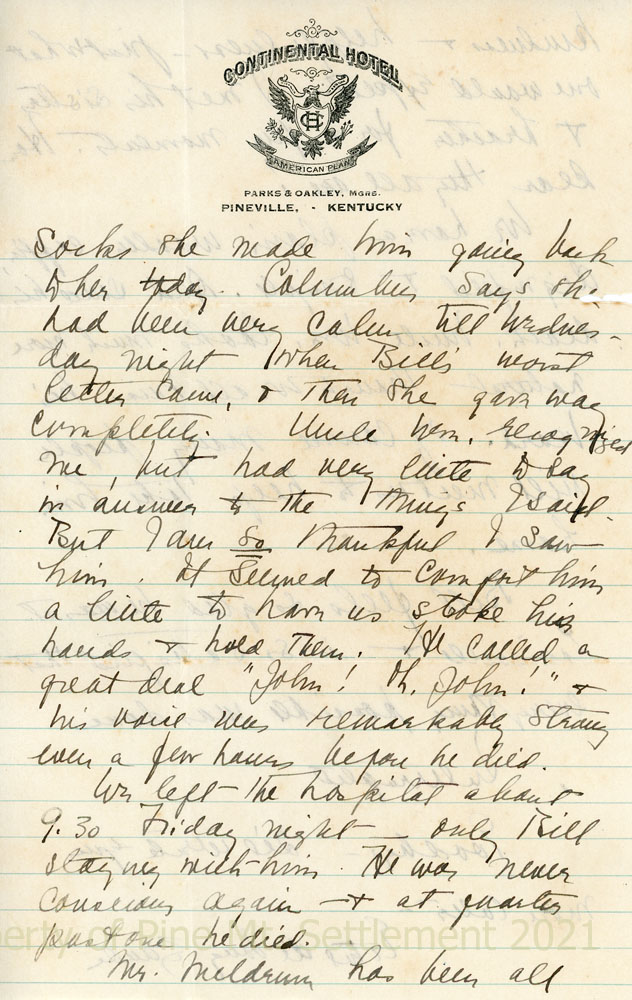 CONTINENTAL HOTEL
CH
AMERICAN PLAN
PARKS & OAKLEY, MGRS.
PINEVILLE, - KENTUCKY
Socks she made him going back
to her today. Columbus says she
had been very calm till Wednes-
day night when Bill's worst
letter came, & then she gave way
completely. Uncle Wm. recognized
me, but had very little to say
in answer to the things I said.
But I am so thankful I saw
him. It seemed to comfort him
a little to have us stroke his
hands & hold them. He called a
great deal "John! Oh, John!" &
his voice was remarkably strong
even a few hours before he died.
We left the hospital about
9.30 Friday night - only Bill
staying with him. He was never
conscious again - & at quarter
past one he died.
Mr. Meldrum has been all
erty of Pine Mt. Settlement 2021